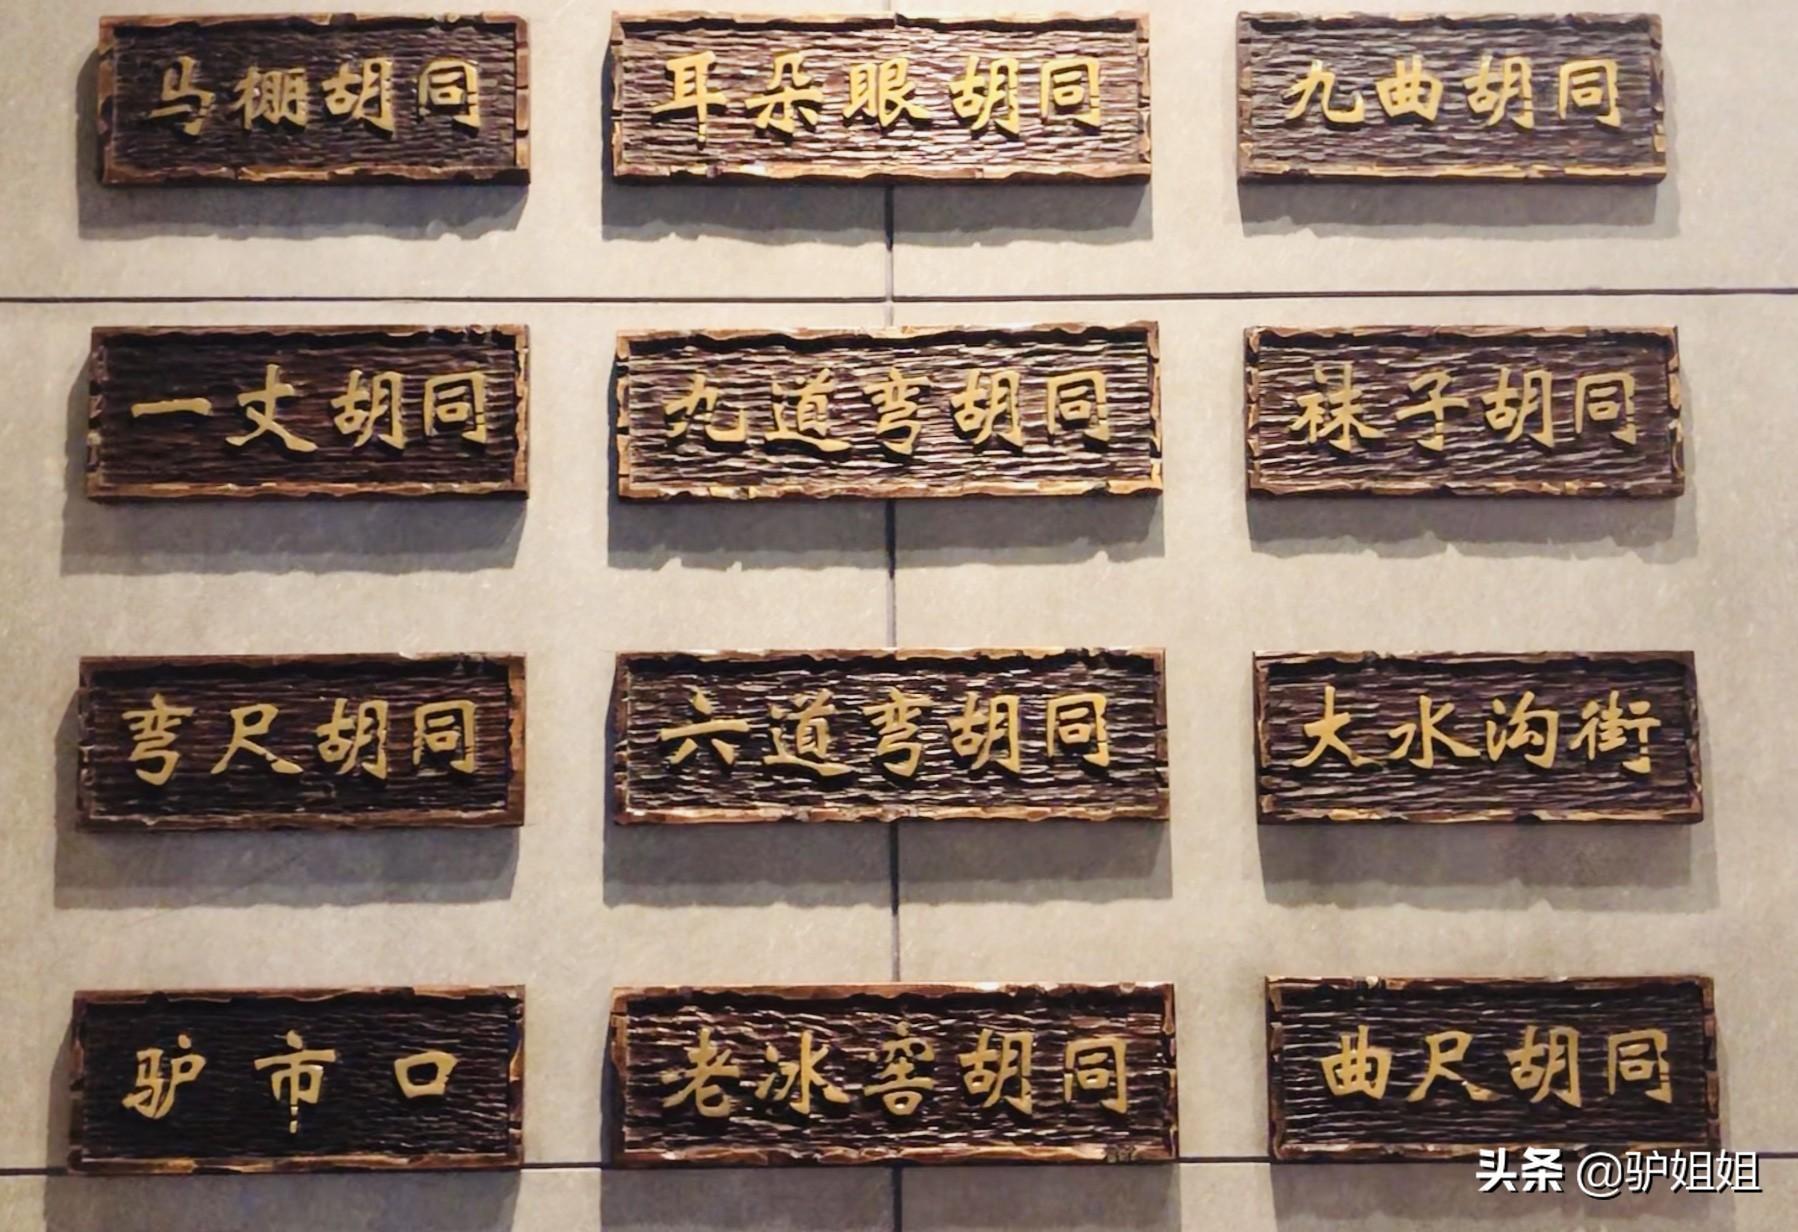 马棚胡同
耳朵眼胡同
九曲胡同
一丈胡同
九道弯胡同
袜子胡同
弯尺胡同
六道弯胡同
大水沟街
驴市口
老冰窖胡同
曲尺胡同
头条 @驴姐姐